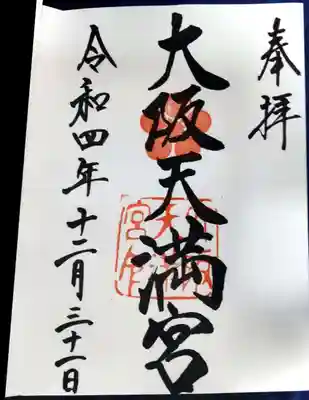 奉拝
大阪天満宮
令和四年十二月三十一日